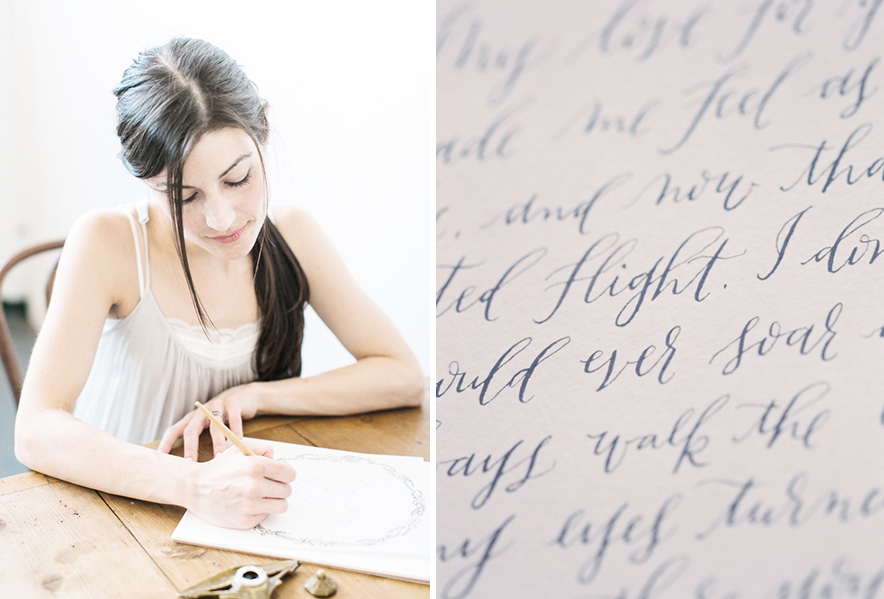 My love for y
ade me feel as
, and now tha
ted flight. I don
ould ever soar
ays walk the
my eyes turne